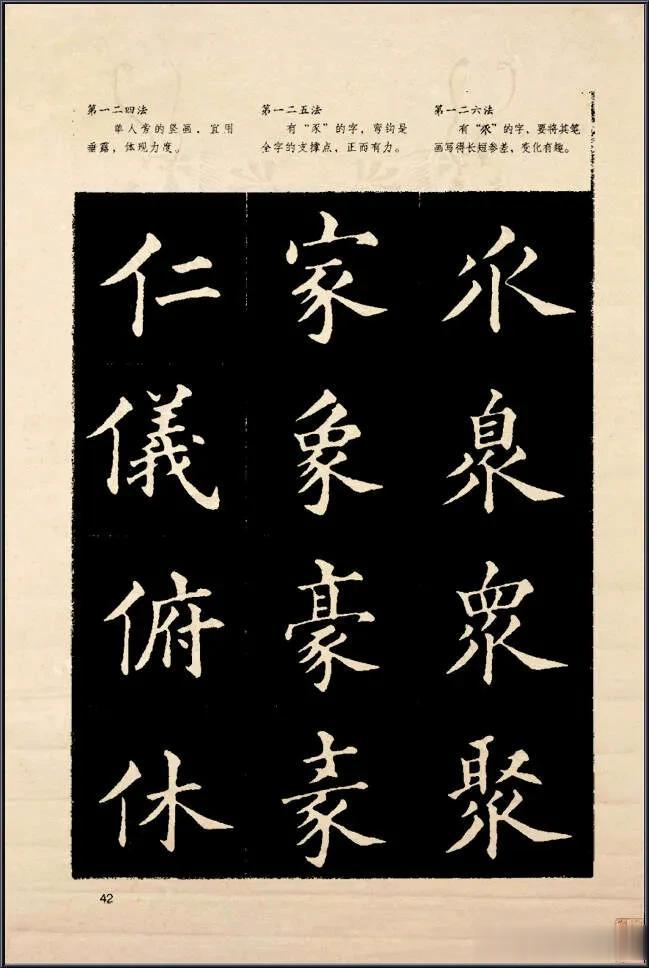 第一二四法
单人旁的竖画，宜用
垂露，体现力度。
第一二五法
有“豕”的字，弯钩是
全字的支撑点，正而有力。
第一二六法
有“乑”的字，要将其笔
画写得长短参差，变化有趣。
仁 家 乑
儀 象 臮
俯 豪 眾
休 聚
42